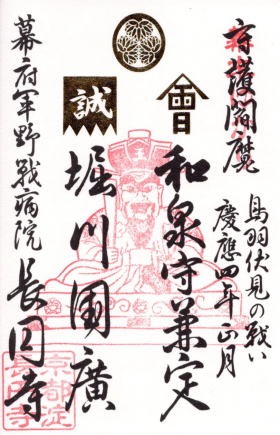 守護閻魔
鳥羽伏見の戦い
慶應四年正月
和泉守兼定
堀川國廣
誠
幕府軍野戦病院
長円寺
京都淀
長円寺